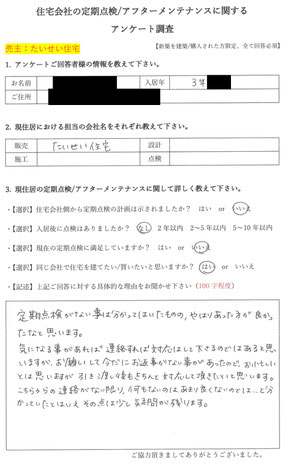 住宅会社の定期点検/アフターメンテナンスに関する
アンケート調査
売主：たいせい住宅
【新築を建築/購入された方限定、全て回答必須】
1. アンケートご回答者様の情報を教えて下さい。
お名前 入居年 3年
ご住所
2. 現住居における担当の会社名をそれぞれ教えて下さい。
販売 たいせい住宅 設計
施工 点検
3. 現住居の定期点検/アフターメンテナンスに関して詳しく教えて下さい。
・【選択】住宅会社側から定期点検の計画は示されましたか？ はい or いいえ
・【選択】入居後に点検はありましたか？ なし 2年以内 2～5年以内 5～10年以内
・【選択】現在の定期点検に満足していますか？ はい or いいえ
・【選択】同じ会社で住宅を建てたい/買いたいと思いますか？ はい or いいえ
・【記述】上記ご回答に対する具体的な理由をお聞かせ下さい（100字程度）
定期点検がない事は分かってはいたものの、やはりあった方が良かっ
たなと思います。
気になる事があれば連絡すれば対応はして下さるのではあると思
いますが、お願いして今だにお返事がない事があったので、おいそがしい
とは思いますが引き渡し後もきちんと対応して頂きたいと思います。
こちらからの連絡がない限り、何もないのはあまり良くないのでは…と分
かっていたとはいえその点は少し疑問が残ります。
ご協力頂きましてありがとうございました。